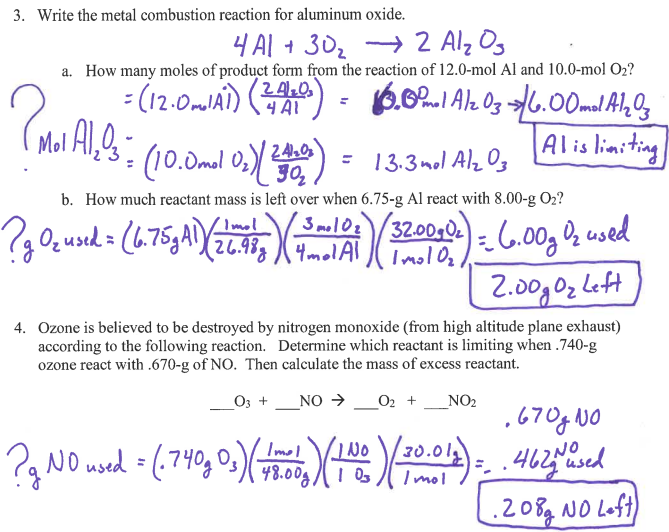 3. Write the metal combustion reaction for aluminum oxide.
4 Al + 3O₂ → 2 Al₂O₃
a. How many moles of product form from the reaction of 12.0-mol Al and 10.0-mol O₂?
? Mol Al₂O₃ = (12.0 mol Al) (2 Al₂O₃ / 4 Al) = 6.00 mol Al₂O₃ → 6.00 mol Al₂O₃
= (10.0 mol O₂) (2 Al₂O₃ / 3O₂) = 13.3 mol Al₂O₃ Al is limiting
b. How much reactant mass is left over when 6.75-g Al react with 8.00-g O₂?
? g O₂ used = (6.75g Al) (1 mol / 26.98g) (3 mol O₂ / 4 mol Al) (32.00g O₂ / 1 mol O₂) = 6.00g O₂ used
2.00g O₂ Left
4. Ozone is believed to be destroyed by nitrogen monoxide (from high altitude plane exhaust)
according to the following reaction. Determine which reactant is limiting when .740-g
ozone react with .670-g of NO. Then calculate the mass of excess reactant.
__O₃ + __NO → __O₂ + __NO₂
.670g NO
? g NO used = (.740g O₃) (1 mol / 48.00g) (1 NO / 1 O₃) (30.01g / 1 mol) = - .462g NO used
.208g NO Left